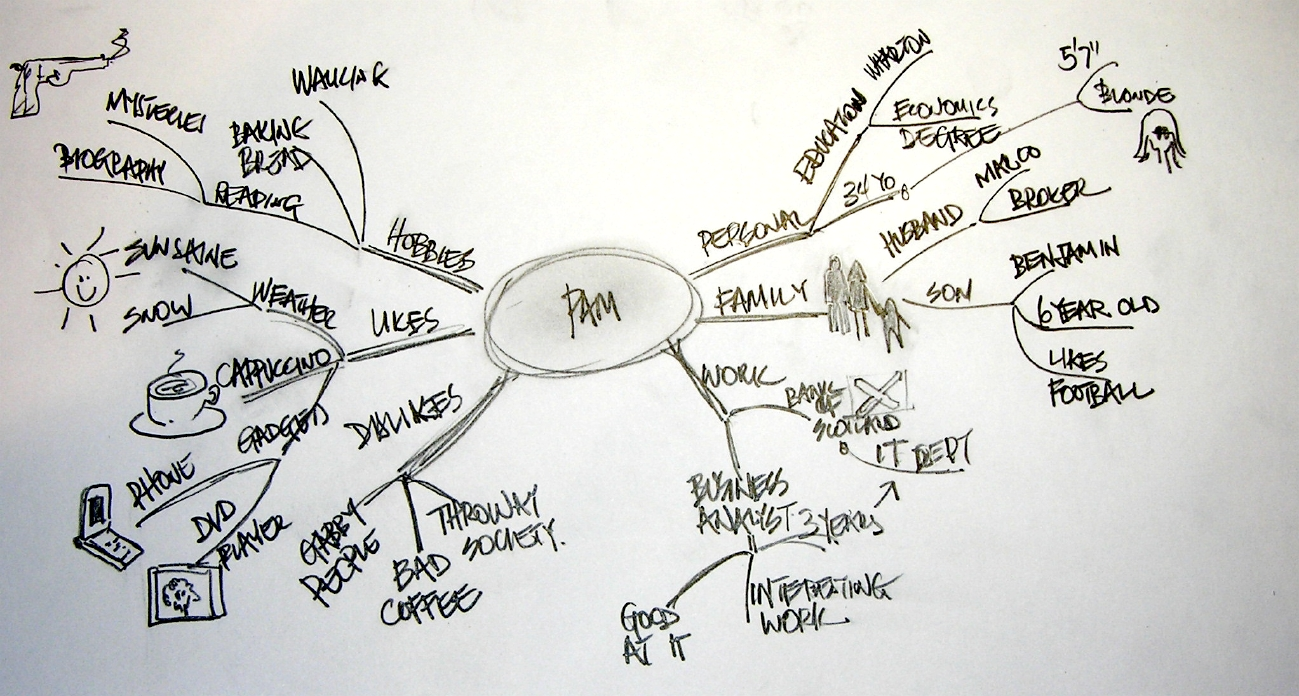 PAM
HOBBIES
WALKING
BAKING
BREAD
READING
MYSTERIES
BIOGRAPHY
LIKES
WEATHER
SUNSHINE
SNOW
CAPPUCCINO
GADGETS
PHONE
DVD
PLAYER
DISLIKES
GABBY
PEOPLE
BAD
COFFEE
THROWAY
SOCIETY.
PERSONAL
EDUCATION
WHARTON
ECONOMICS
DEGREE
34 YO
5'7"
BLONDE
FAMILY
HUSBAND
MARCO
BROKER
SON
BENJAMIN
6 YEAR OLD
LIKES
FOOTBALL
WORK
BANK
OF
SCOTLAND
IT DEPT
BUSINESS
ANALYST
3 YEARS
GOOD
AT IT
INTERESTING
WORK